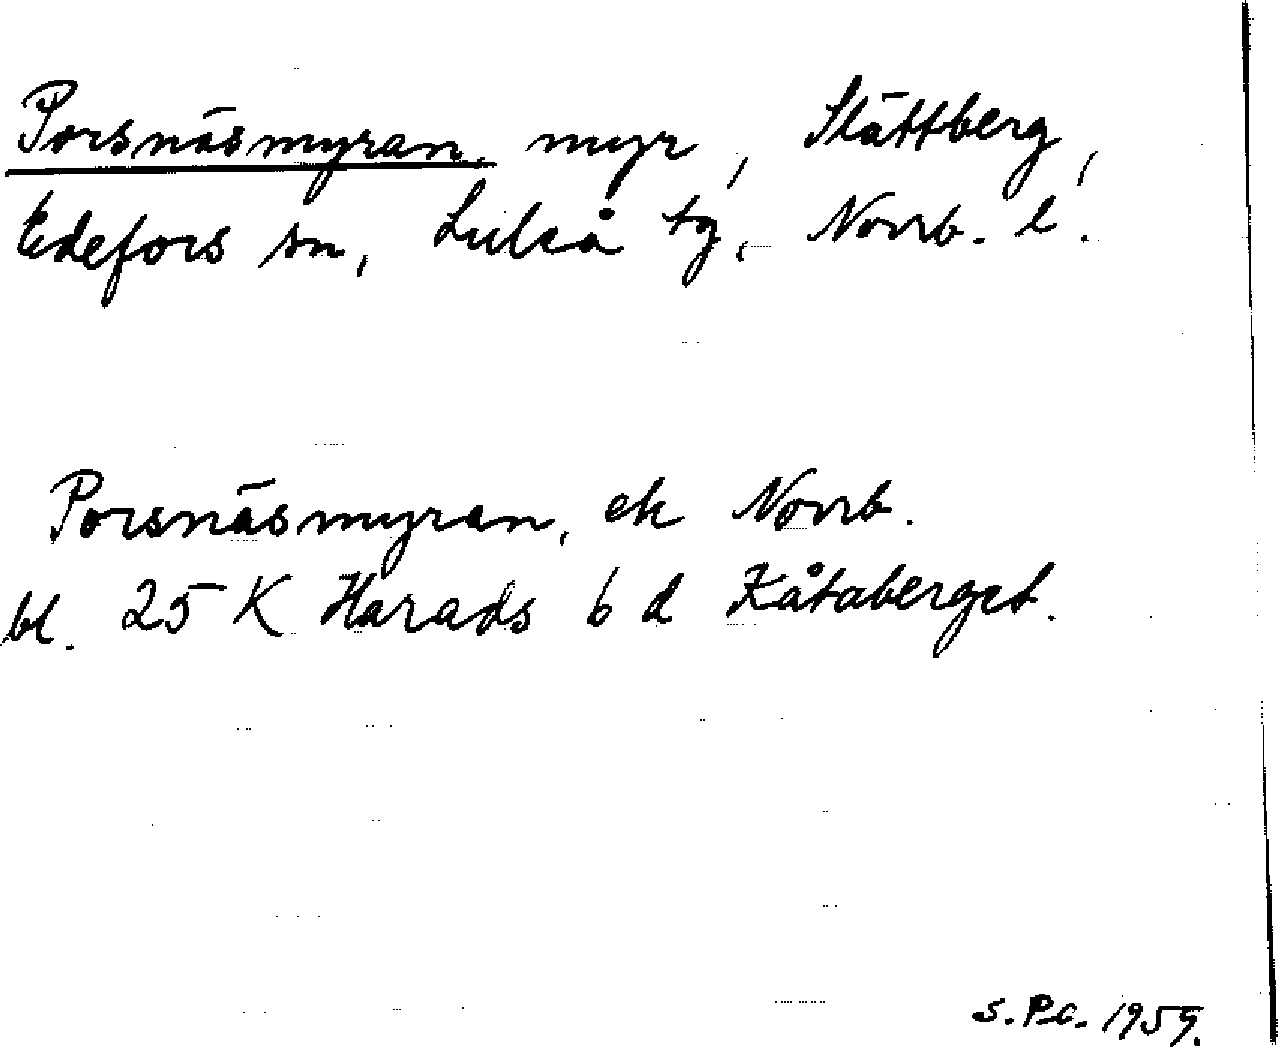 Porsnäsmyran, myr, Slättberg,
Edefors sn, Luleå tg, Norrb. l.
Porsnäsmyran, ek Norrb.
bl. 25 K Harads 6 d Kåtaberget.
S. P.c. 1959.